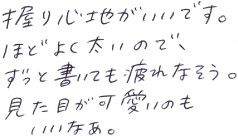 握り心地がいいです。
ほどよく太いので、
ずっと書いても疲れなそう。
見た目が可愛いのも
いいなぁ。